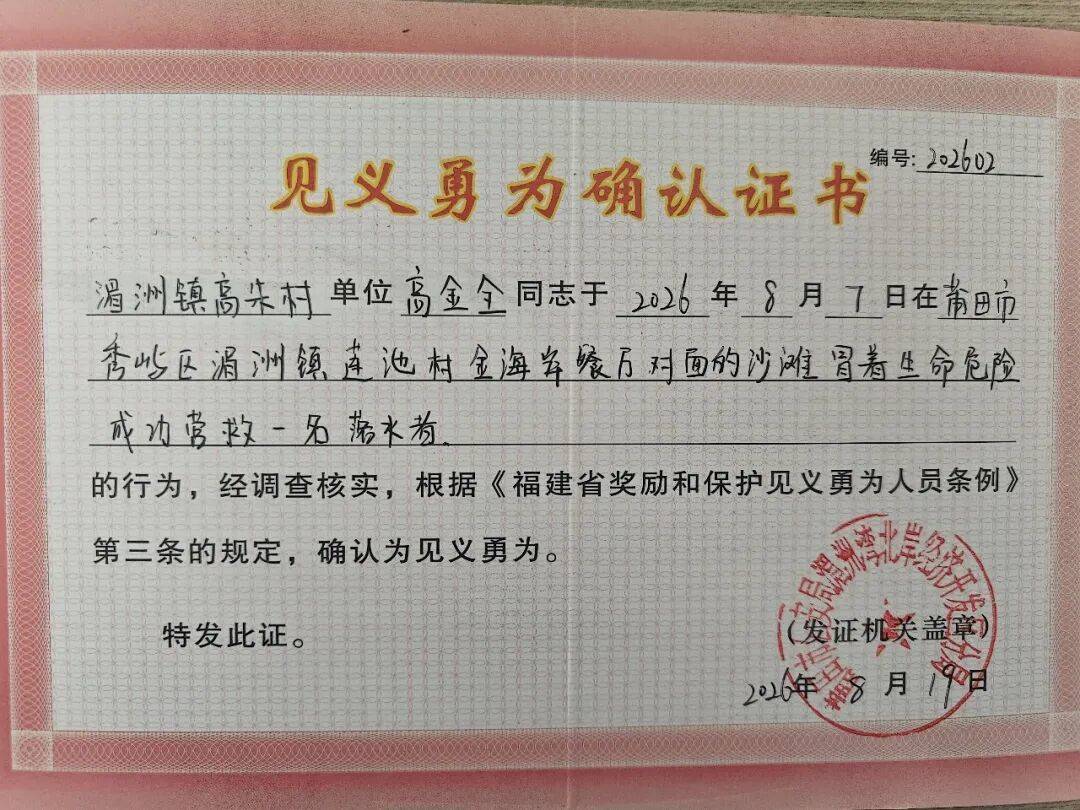 编号: 202602
见义勇为确认证书
湄洲镇高朱村 单位 高金全 同志于 2026 年 8 月 7 日在 莆田市
秀屿区湄洲镇莲池村金海岸餐厅对面的沙滩冒着生命危险
成功营救一名落水者.
的行为，经调查核实，根据《福建省奖励和保护见义勇为人员条例》
第三条的规定，确认为见义勇为。
特发此证。
莆田市公安局湄洲湾北岸经济开发区分局
（发证机关盖章）
2026年 8 月 19 日